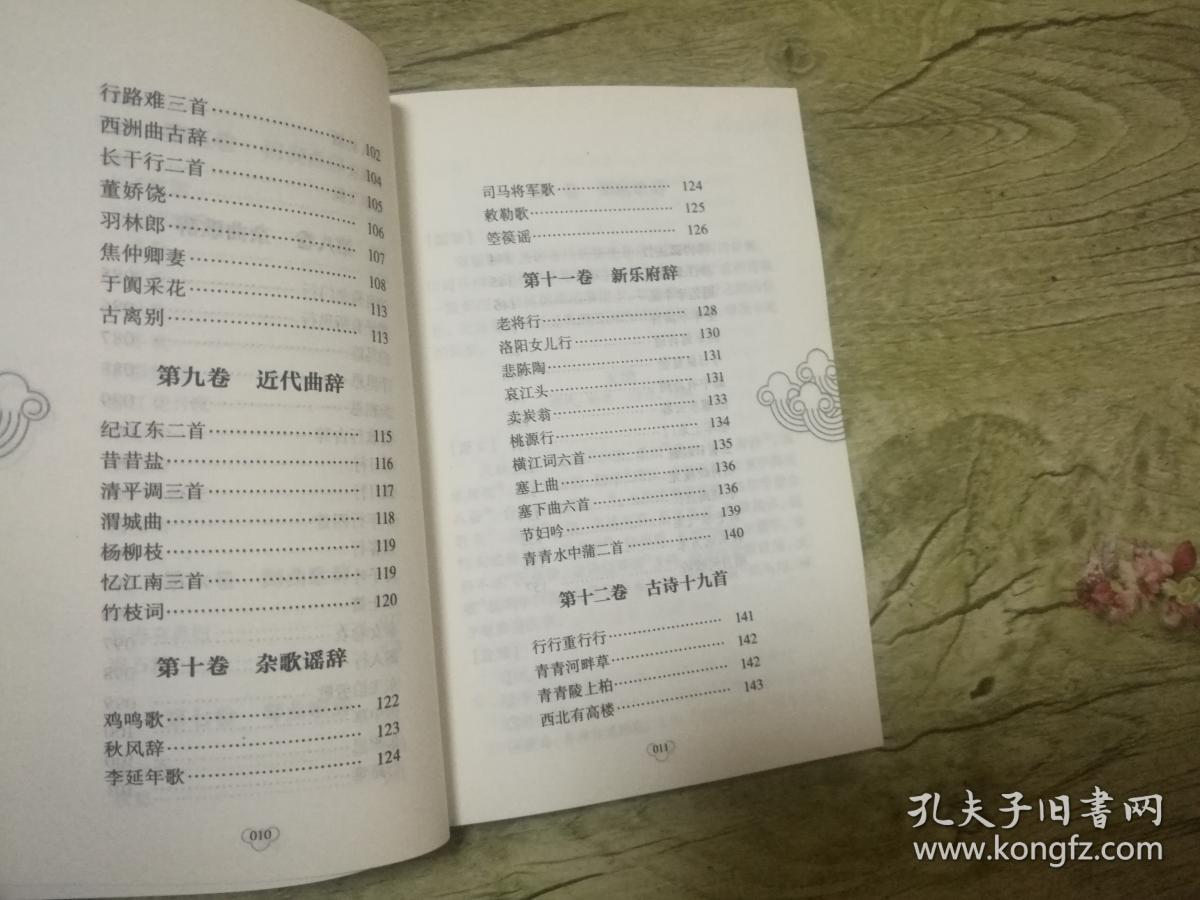 行路难三首 102
西洲曲古辞 104
长干行二首 105
董娇饶 106
羽林郎 107
焦仲卿妻 108
于阗采花 113
古离别 113
第九卷 近代曲辞
纪辽东二首 115
昔昔盐 116
清平调三首 117
渭城曲 118
杨柳枝 119
忆江南三首 119
竹枝词 120
第十卷 杂歌谣辞
鸡鸣歌 122
秋风辞 123
李延年歌 124
010
司马将军歌 124
敕勒歌 125
箜篌谣 126
第十一卷 新乐府辞
老将行 128
洛阳女儿行 130
悲陈陶 131
哀江头 131
卖炭翁 133
桃源行 134
横江词六首 135
塞上曲 136
塞下曲六首 136
节妇吟 139
青青水中蒲二首 140
第十二卷 古诗十九首
行行重行行 141
青青河畔草 142
青青陵上柏 142
西北有高楼 143
011
孔夫子旧书网
www.kongfz.com